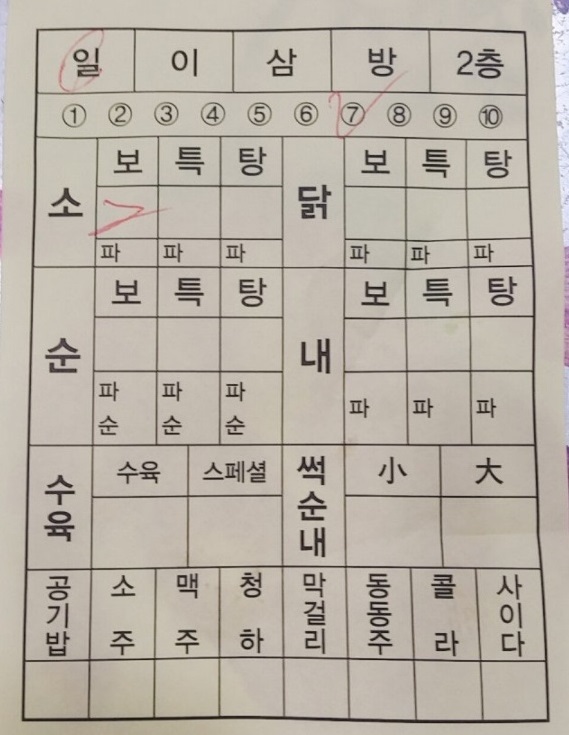 일 이 삼 방 2층
① ② ③ ④ ⑤ ⑥ ⑦ ⑧ ⑨ ⑩
소 보 특 탕 닭 보 특 탕
파 파 파 파 파 파
순 보 특 탕 내 보 특 탕
파 파 파 파 파 파
순 순 순
수육 수육 스페셜 썩순내 小 大
공기밥 소주 맥주 청하 막걸리 동동주 콜라 사이다